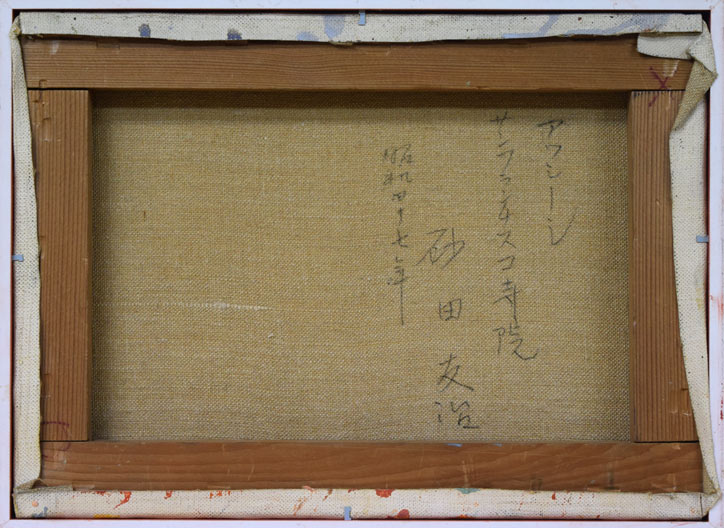 アッシーシ
サンフランチスコ寺院
砂田友治
昭和四十七年